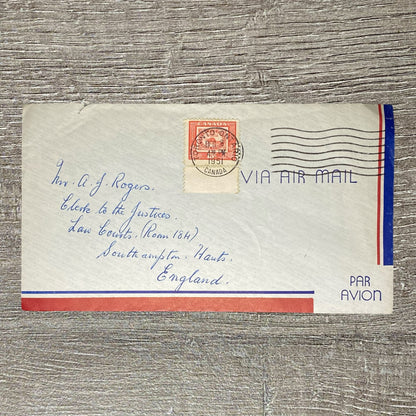 CANADA
TORONTO
1951
CANADA
VIA AIR MAIL
Mr. A. J. Rogers.
Clerk to the Justices.
Law Courts. (Room 184)
Southampton. Hants.
England.
PAR
AVION